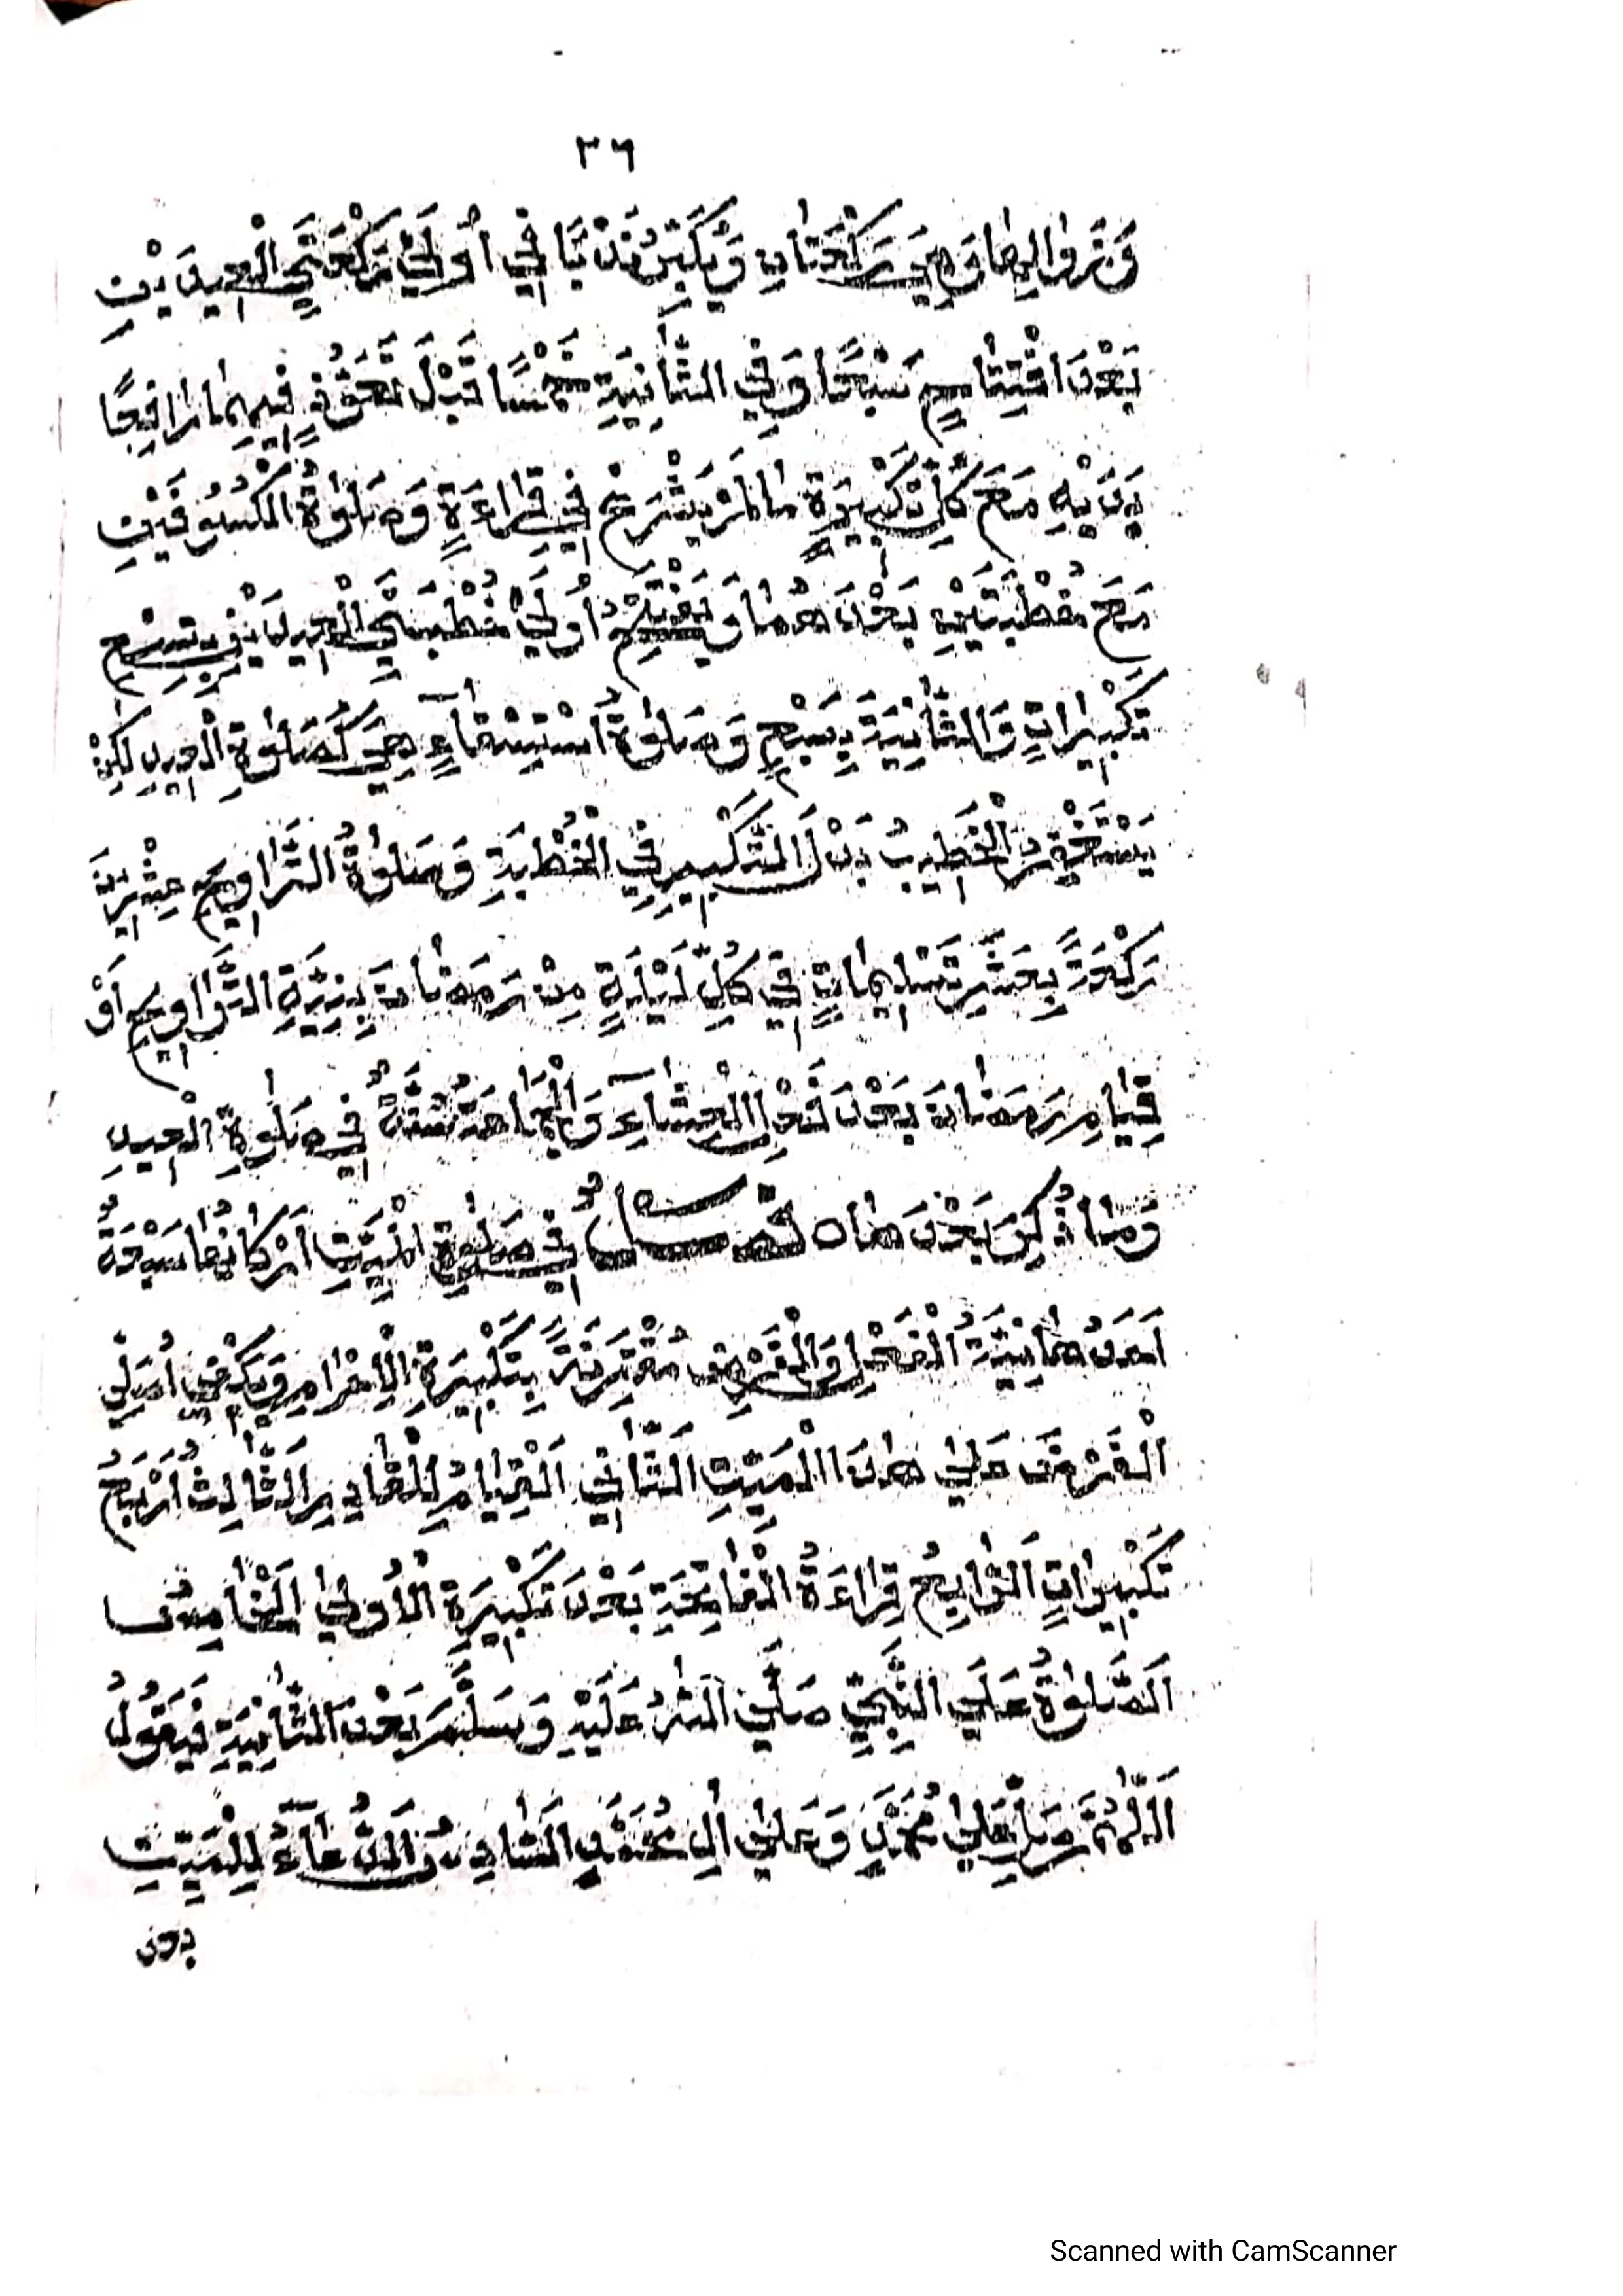 ٣٦
وَزَوَالِهَا وَهِيَ رَكْعَتَانِ وَيُكَبِّرُ نَدْبًا فِي أُولَىٰ رَكْعَتَيِ الْعِيدَيْنِ
بَعْدَ افْتِتَاحٍ سَبْعًا وَفِي الثَّانِيَةِ خَمْسًا قَبْلَ تَعَوُّذٍ فِيهِمَا رَافِعًا
يَدَيْهِ مَعَ كُلِّ تَكْبِيرَةٍ مَالَمْ يَشْرَعْ فِي قِرَاءَةٍ وَصَلٰوةُ الْكُسُوفَيْنِ
مَعَ خُطْبَتَيْنِ بَعْدَهُمَا وَيَفْتَتِحُ أُولَىٰ خُطْبَتَيِ الْعِيدَيْنِ بِتِسْعِ
تَكْبِيرَاتٍ وَالثَّانِيَةَ بِسَبْعٍ وَصَلٰوةُ اسْتِسْقَآءٍ هِيَ كَصَلٰوةِ الْعِيدِ لٰكِنْ
يَسْتَغْفِرُ الْخَطِيبُ بَدَلَ التَّكْبِيرِ فِي الْخُطْبَةِ وَصَلٰوةُ التَّرَاوِيحِ عِشْرِينَ
رَكْعَةً بِعَشْرِ تَسْلِيمَاتٍ فِي كُلِّ لَيْلَةٍ مِنْ رَمَضَانَ بِنِيَّةِ التَّرَاوِيحِ أَوْ
قِيَامِ رَمَضَانَ بَعْدَ فِعْلِ الْعِشَآءِ وَالْجَمَاعَةُ سُنَّةٌ فِي صَلٰوةِ الْعِيدِ
وَمَا ذُكِرَ بَعْدَ هَا فَصْلٌ فِي صَلٰوةِ الْمَيِّتِ أَرْكَانُهَا سَبْعَةٌ
أَحَدُهَا نِيَّةُ الْفِعْلِ وَالْفَرْضِ مُقْتَرِنَةً بِتَكْبِيرَةِ الْإِحْرَامِ وَيَكْفِي أُصَلِّي
الْفَرْضَ عَلَىٰ هٰذَا الْمَيِّتِ الثَّانِي الْقِيَامُ لِلْقَادِرِ الثَّالِثُ أَرْبَعُ
تَكْبِيرَاتٍ الرَّابِعُ قِرَاءَةُ الْفَاتِحَةِ بَعْدَ تَكْبِيرَةِ الْأُولَىٰ الْخَامِسُ
الصَّلٰوةُ عَلَى النَّبِيِّ صَلَّى اللّٰهُ عَلَيْهِ وَسَلَّمَ بَعْدَ الثَّانِيَةِ فَيَقُولُ
اَللّٰهُمَّ صَلِّ عَلَىٰ مُحَمَّدٍ وَعَلَىٰ أٰلِ مُحَمَّدٍ السَّادِسُ الدُّعَآءُ لِلْمَيِّتِ
بعد
Scanned with CamScanner